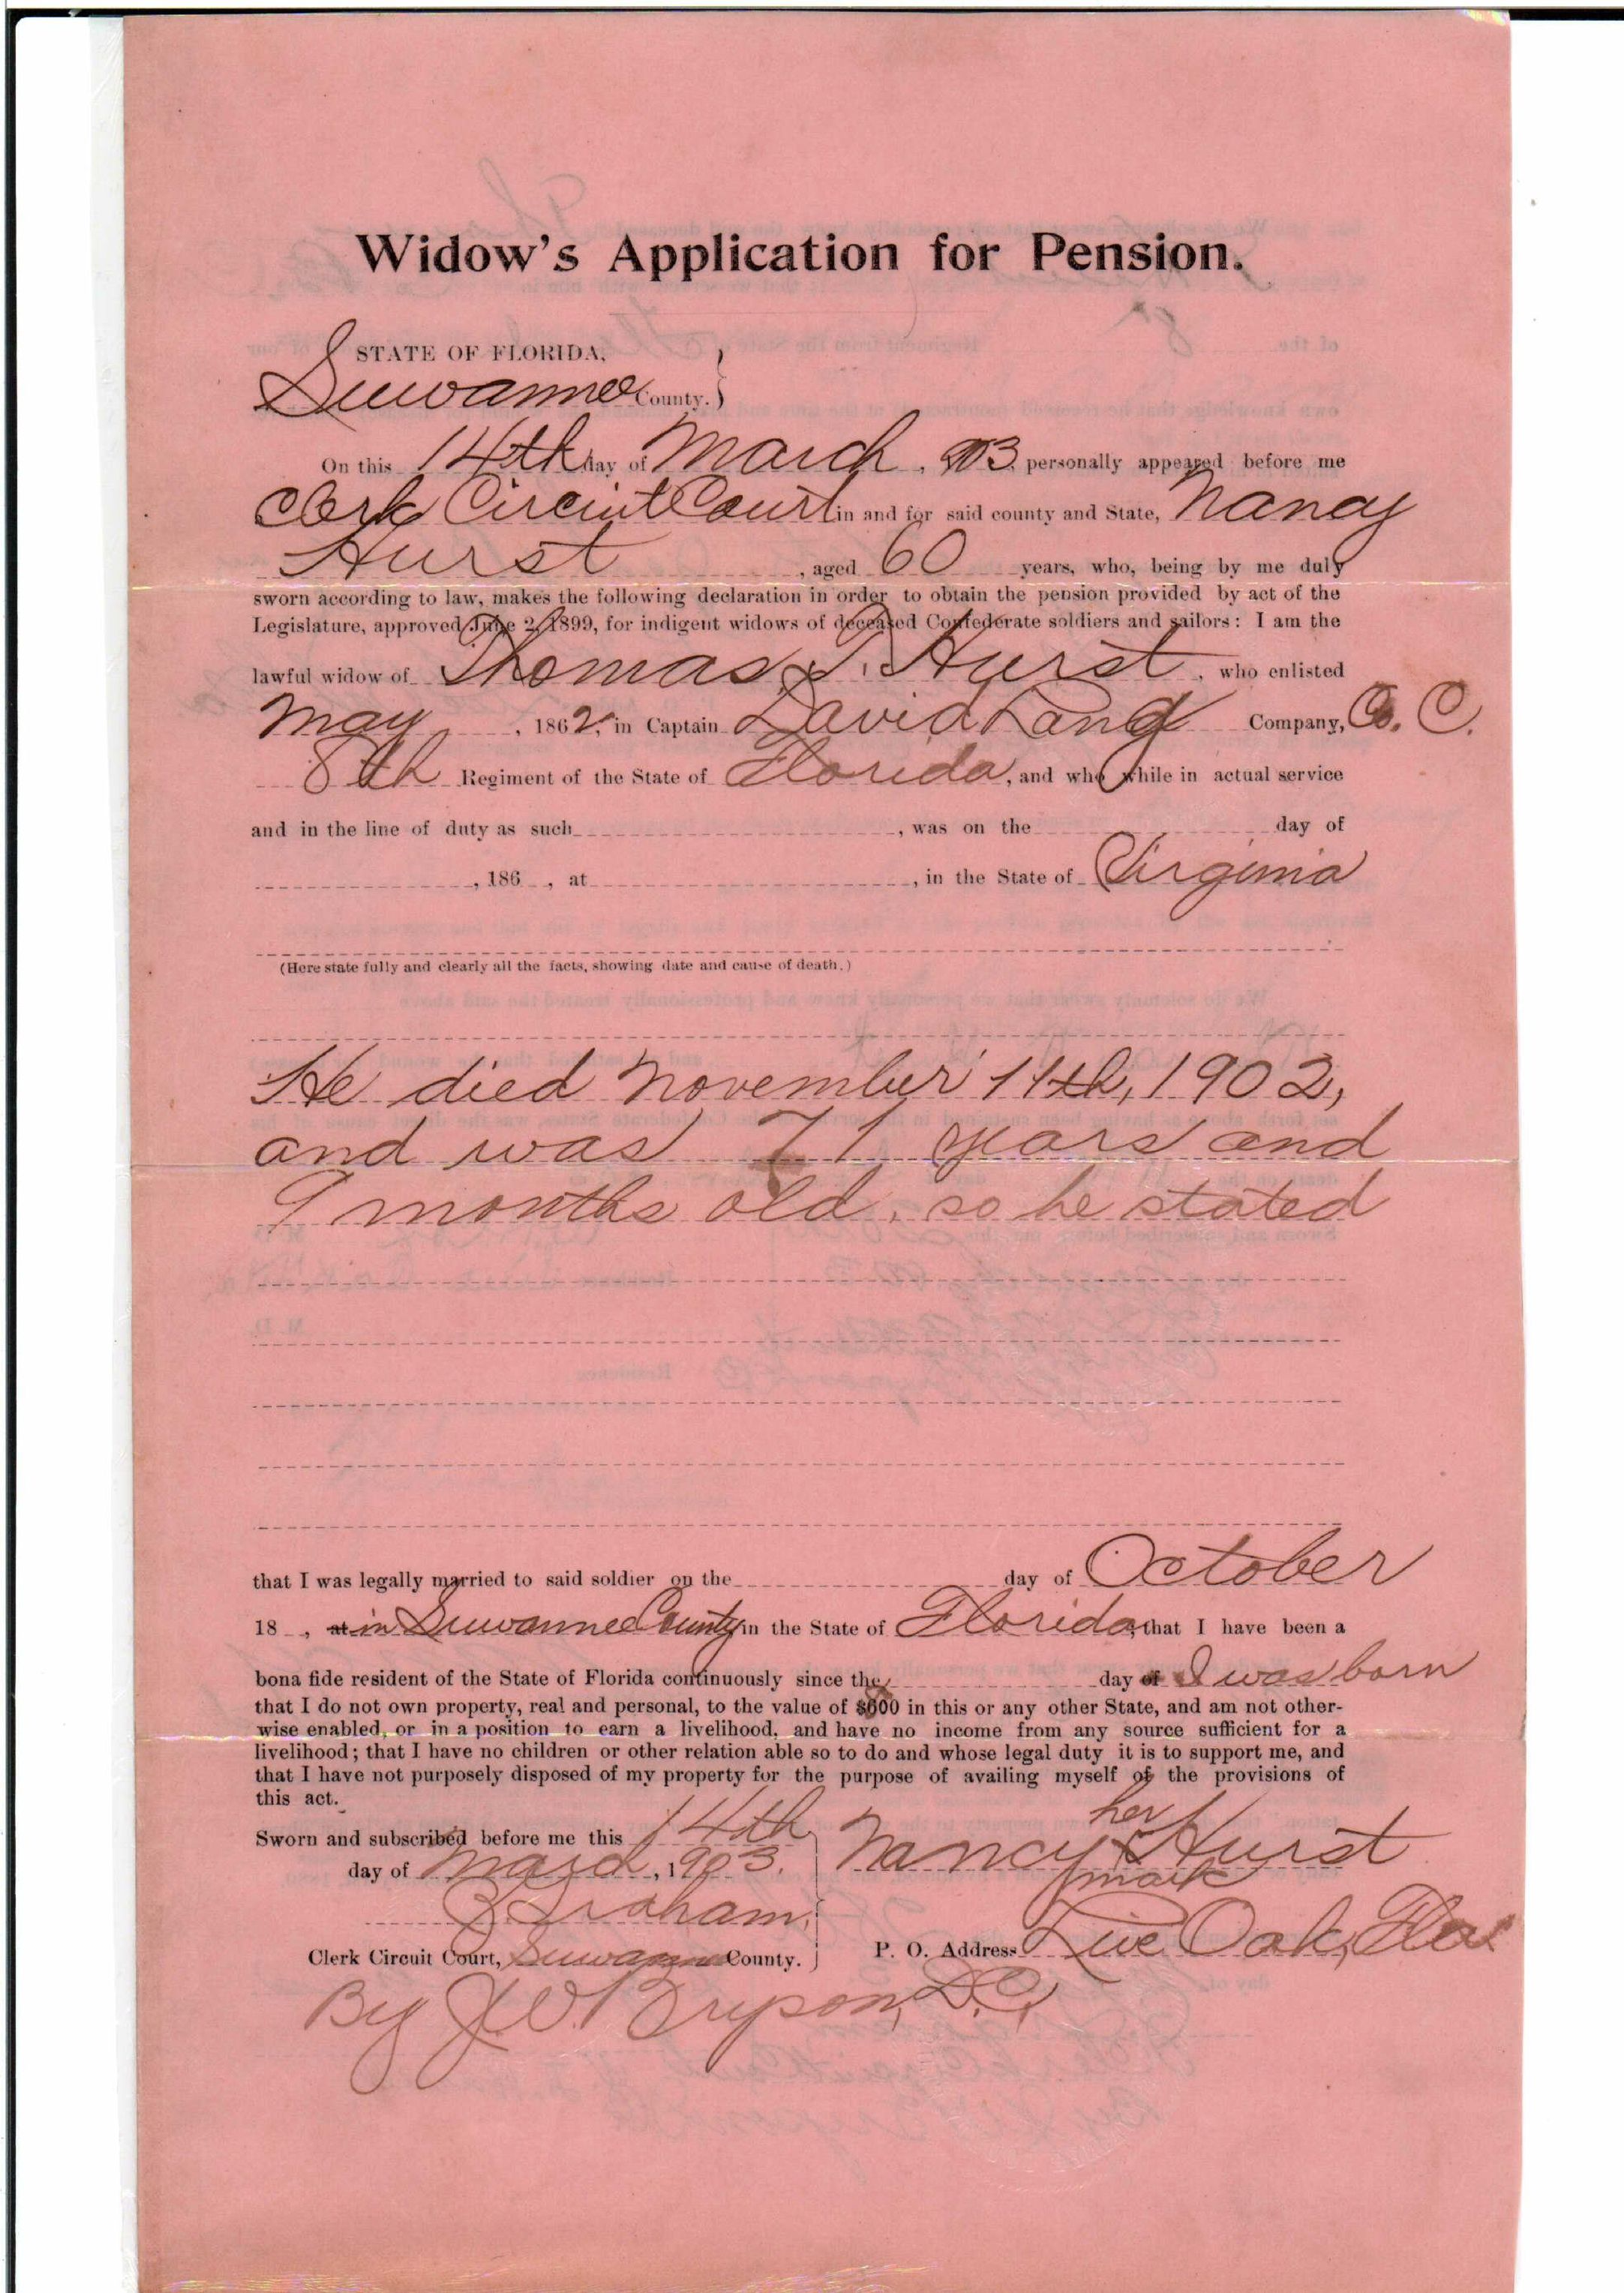 Widow's Application for Pension.
STATE OF FLORIDA,
Suwannee County.
On this 14th day of March, 1903, personally appeared before me
Clerk Circuit Court in and for said county and State, Nancy
Hurst, aged 60 years, who, being by me duly
sworn according to law, makes the following declaration in order to obtain the pension provided by act of the
Legislature, approved June 2, 1899, for indigent widows of deceased Confederate soldiers and sailors: I am the
lawful widow of Thomas Hurst, who enlisted
May, 1862, in Captain David Lang Company, Co. C.
8th Regiment of the State of Florida, and who while in actual service
and in the line of duty as such, was on the day of
, 186 , at , in the State of Virginia
(Here state fully and clearly all the facts, showing date and cause of death.)
He died November 11th, 1902,
and was 71 years and
9 months old, so he stated
that I was legally married to said soldier on the day of October
18 , at in Suwannee County in the State of Florida; that I have been a
bona fide resident of the State of Florida continuously since the day of I was born
that I do not own property, real and personal, to the value of $600 in this or any other State, and am not other-
wise enabled, or in a position to earn a livelihood, and have no income from any source sufficient for a
livelihood; that I have no children or other relation able so to do and whose legal duty it is to support me, and
that I have not purposely disposed of my property for the purpose of availing myself of the provisions of
this act.
Sworn and subscribed before me this 14th
day of March, 1903.
Graham,
Clerk Circuit Court, Suwannee County.
By J. W. Bryson, D.C.
her
Nancy X Hurst
mark
P. O. Address Live Oak, Fla